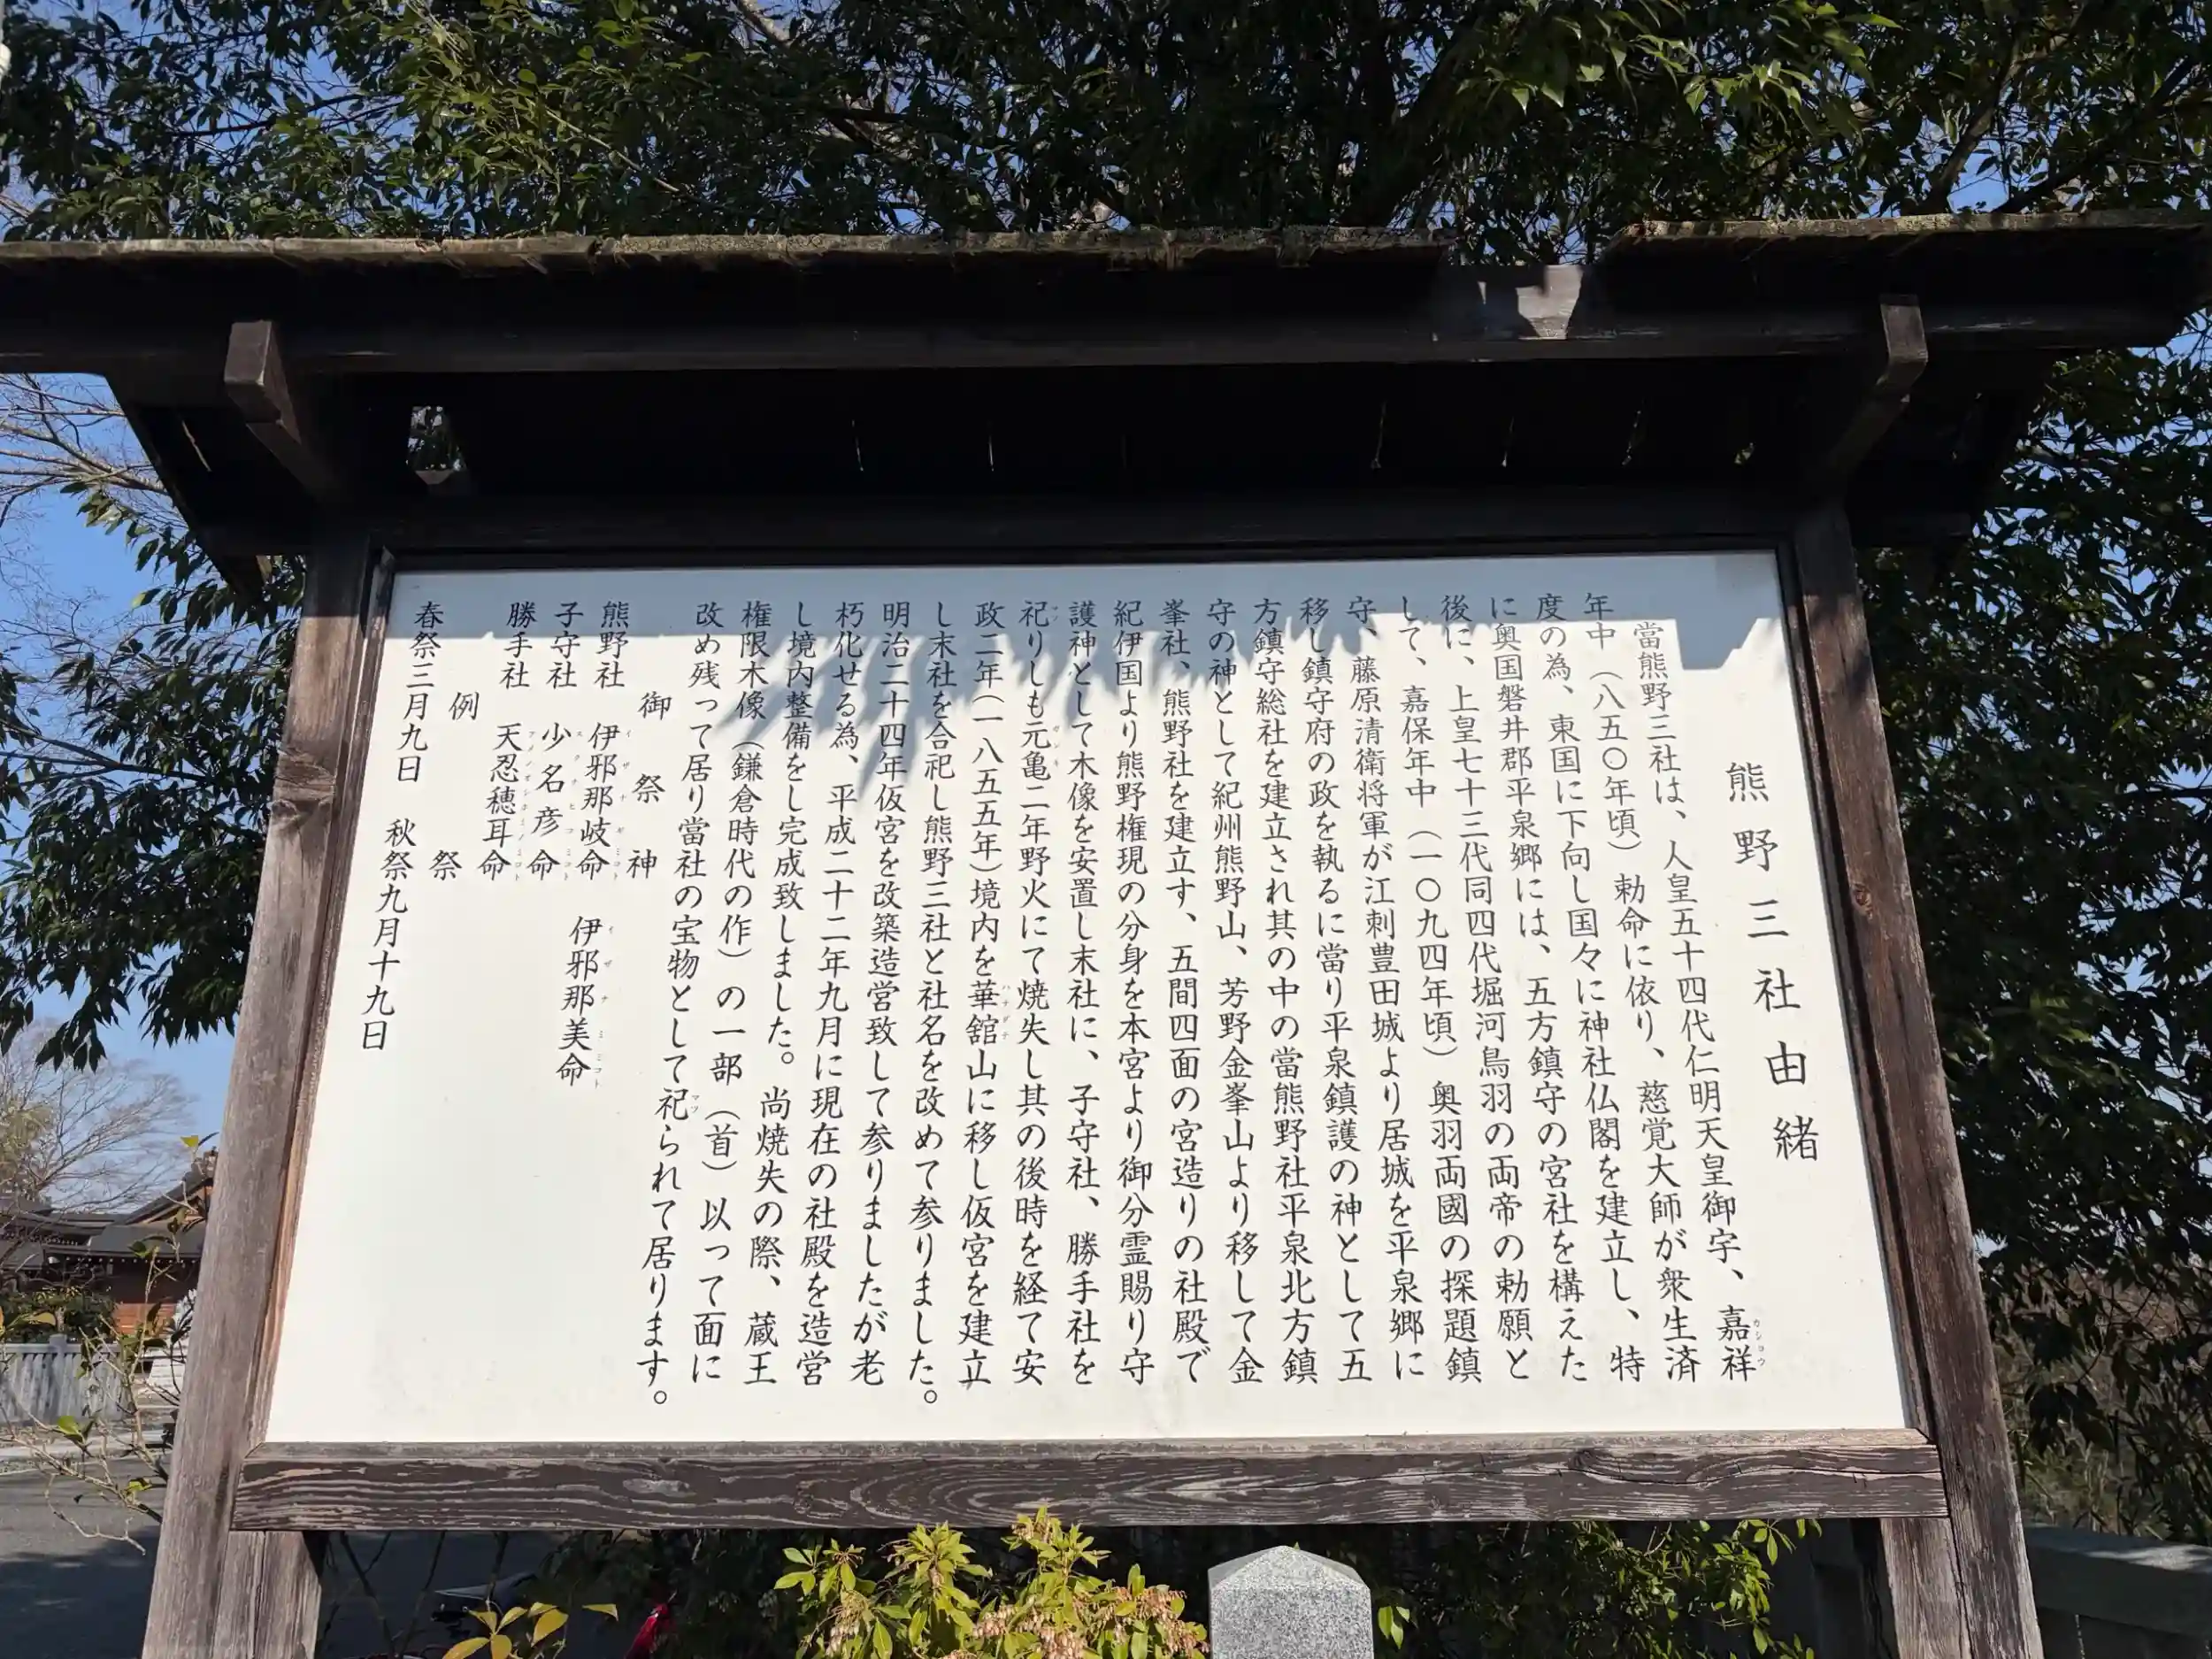 熊野三社由緒
當熊野三社は、人皇五十四代仁明天皇御宇、嘉祥
年中（八五〇年頃）勅命に依り、慈覚大師が衆生済
度の為、東国に下向し国々に神社仏閣を建立し、特
に奥国磐井郡平泉郷には、五方鎮守の宮社を構えた
後に、上皇七十三代同四代堀河鳥羽の両帝の勅願と
して、嘉保年中（一〇九四年頃）奥羽両國の探題鎮
守、藤原清衛将軍が江刺豊田城より居城を平泉郷に
移し鎮守府の政を執るに當り平泉鎮護の神として五
方鎮守総社を建立され其の中の當熊野社平泉北方鎮
守の神として紀州熊野山、芳野金峯山より移して金
峯社、熊野社を建立す、五間四面の宮造りの社殿で
紀伊国より熊野権現の分身を本宮より御分霊賜り守
護神として木像を安置し末社に、子守社、勝手社を
祀りしも元亀二年野火にて焼失し其の後時を経て安
政二年（一八五五年）境内を華舘山に移し仮宮を建立
し末社を合祀し熊野三社と社名を改めて参りました。
明治二十四年仮宮を改築造営致して参りましたが老
朽化せる為、平成二十二年九月に現在の社殿を造営
し境内整備をし完成致しました。尚焼失の際、蔵王
権限木像（鎌倉時代の作）の一部（首）以って面に
改め残って居り當社の宝物として祀られて居ります。
御祭神
熊野社 伊邪那岐命 伊邪那美命
子守社 少名彦命
勝手社 天忍穂耳命
例祭
春祭三月九日 秋祭九月十九日